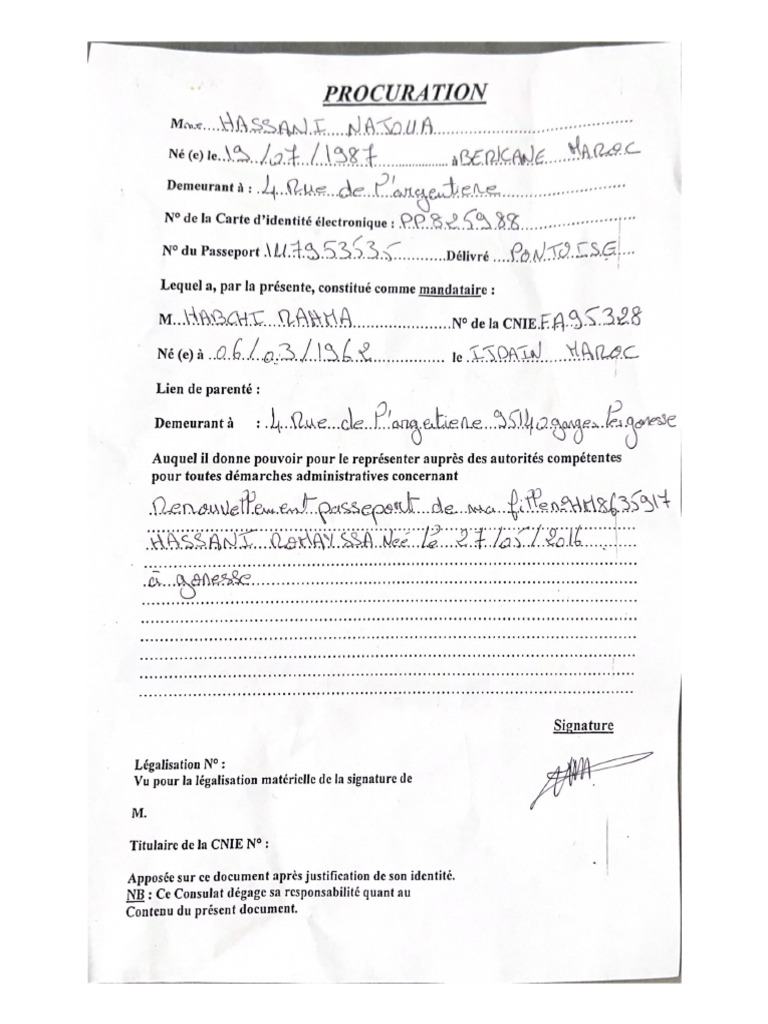 PROCURATION
Mme HASSANI NAJOUA
Né (e) le 19/07/1987 à BERKANE MAROC
Demeurant à : 4 Rue de l'argentiere
N° de la Carte d'identité électronique : PP825988
N° du Passeport 147953535 Délivré PONTOISE
Lequel a, par la présente, constitué comme mandataire :
M. HABCHI RAHMA N° de la CNIE FA95328
Né (e) à 06/03/1962 le IJDAIN MAROC
Lien de parenté :
Demeurant à : 4 Rue de l'argetiere 95140 garges les gonesse
Auquel il donne pouvoir pour le représenter auprès des autorités compétentes
pour toutes démarches administratives concernant
Renouvellement passeport de ma fille n° HM8635917
HASSANI ROMAYSSA Née le 27/05/2016
à gonesse
Signature
Légalisation N° :
Vu pour la légalisation matérielle de la signature de
M.
Titulaire de la CNIE N° :
Apposée sur ce document après justification de son identité.
NB : Ce Consulat dégage sa responsabilité quant au
Contenu du présent document.